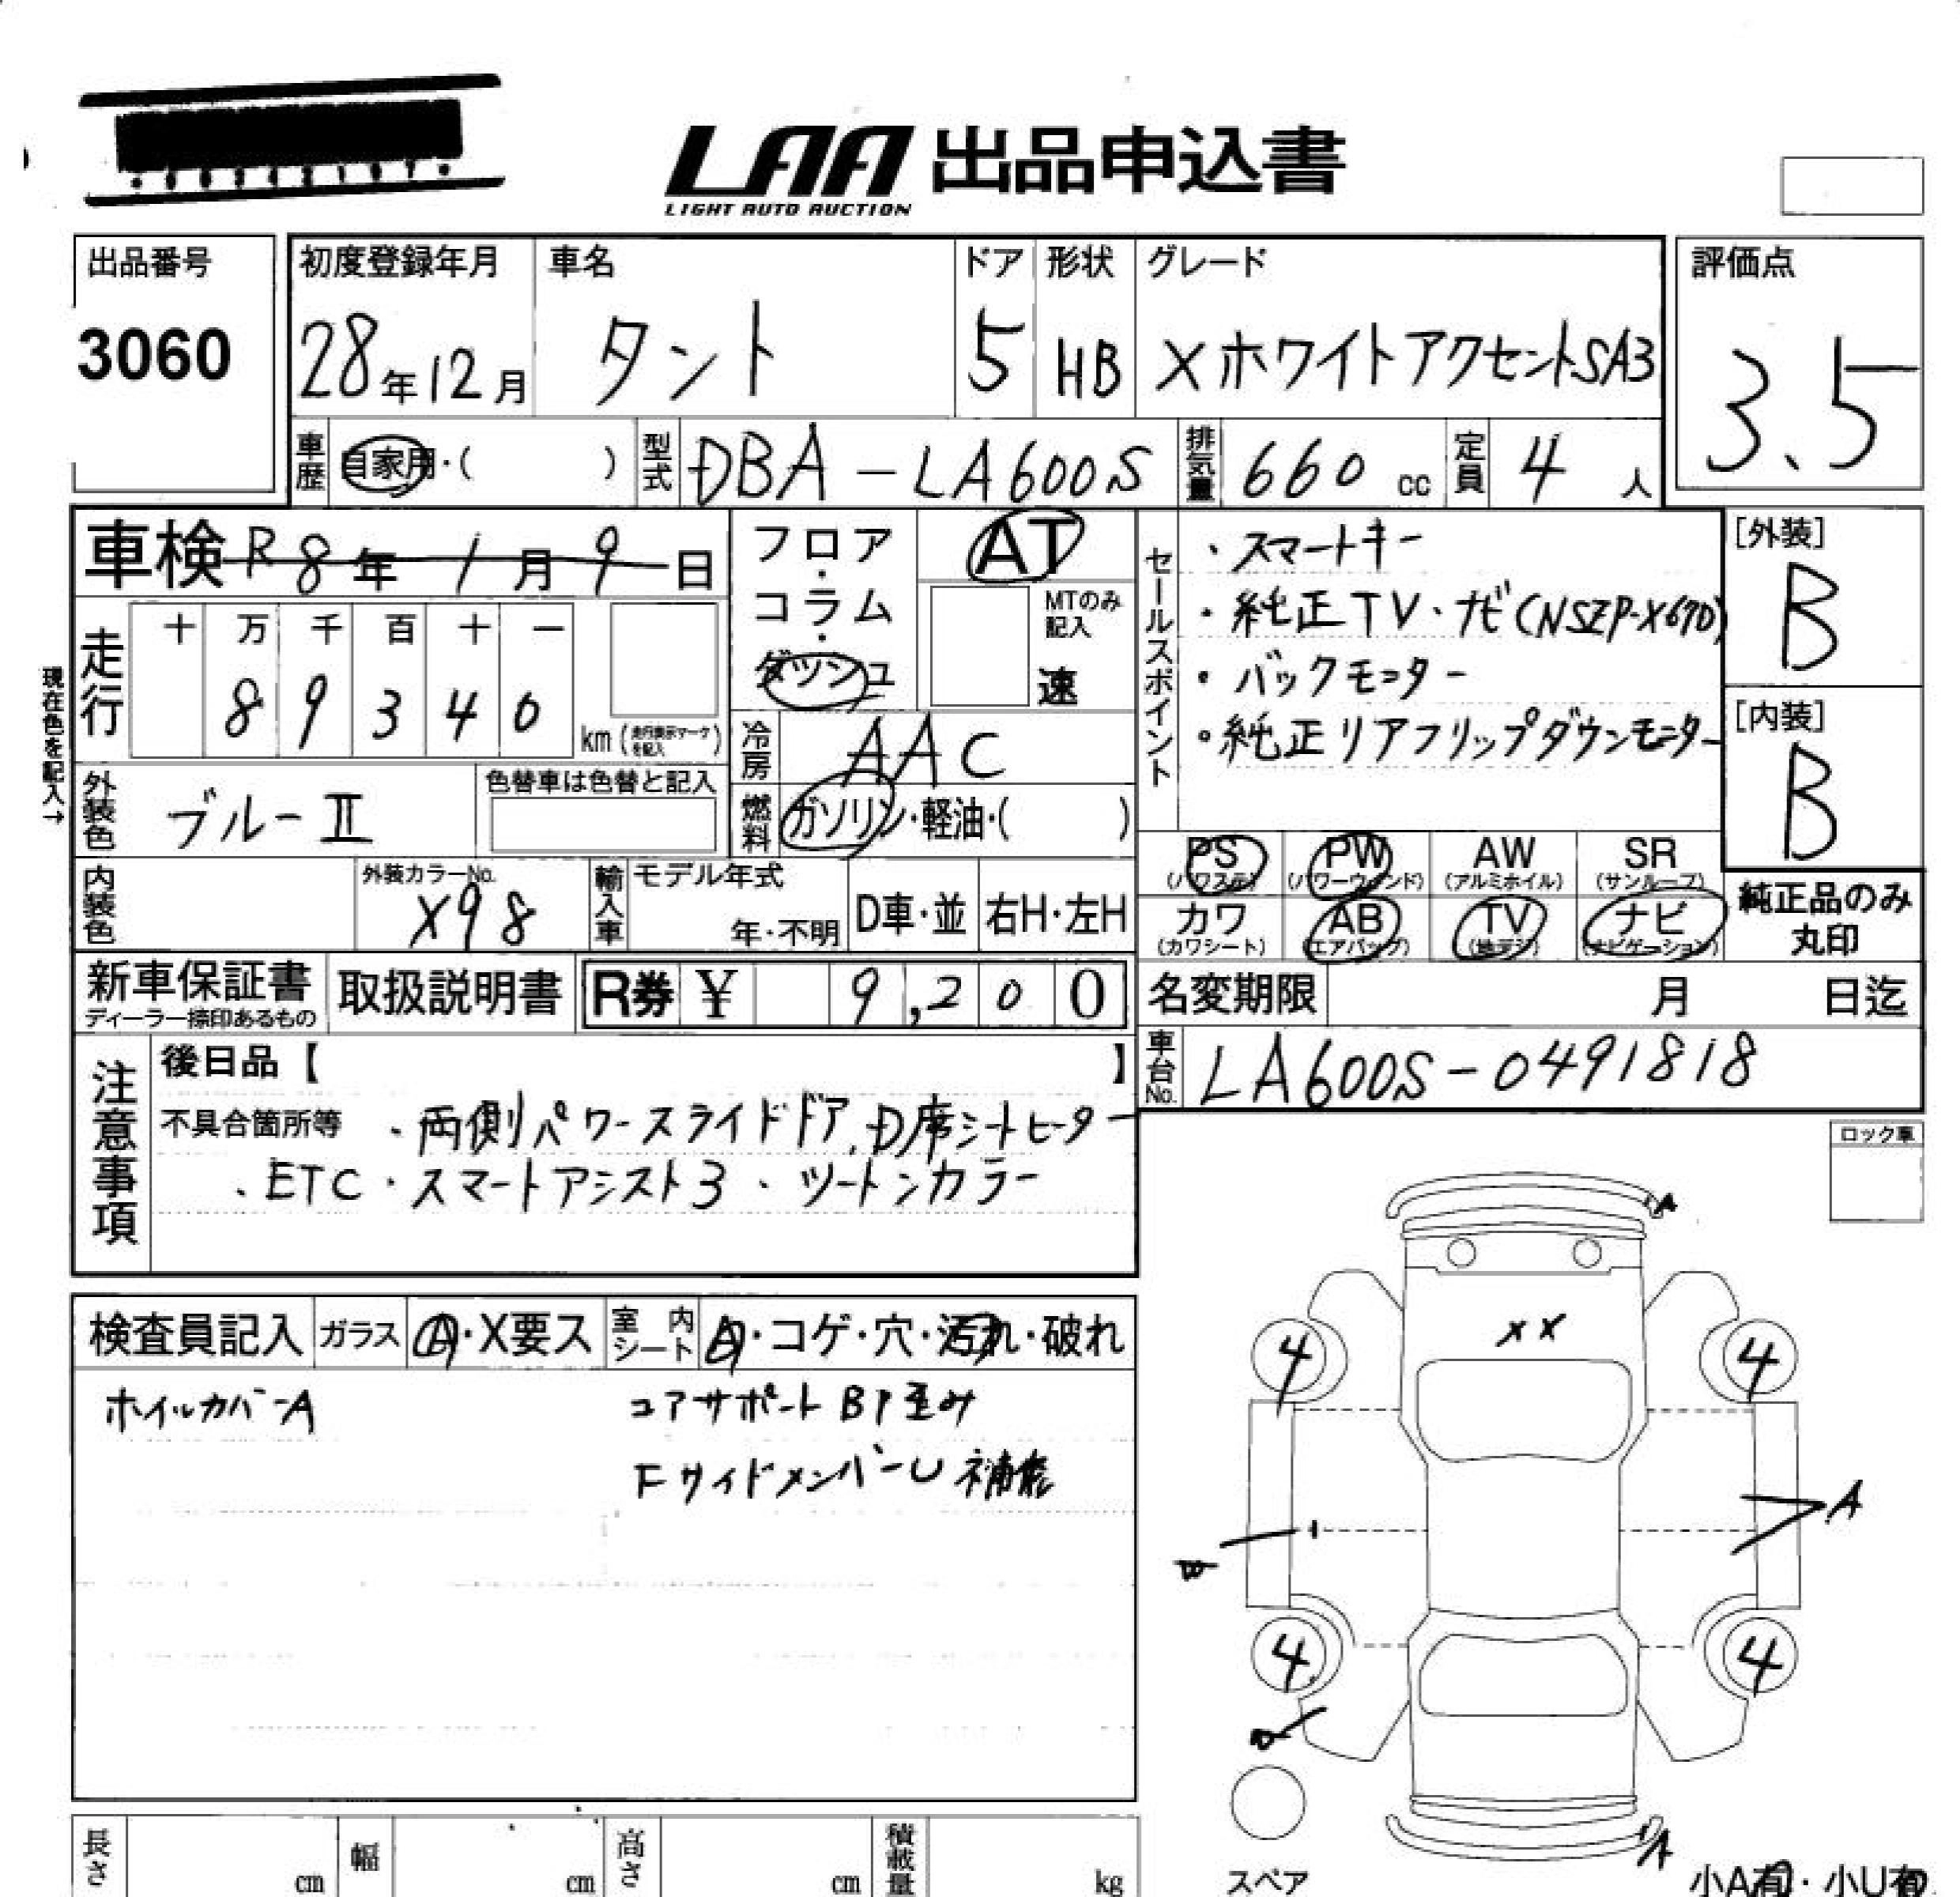 LAA 出品申込書
LIGHT AUTO AUCTION
出品番号
3060
初度登録年月 車名 ドア 形状 グレード
28年12月 タント 5 HB XホワイトアクセントSA3
評価点
3.5
車歴 自家用・( ) 型式 DBA-LA600S 排気量 660 cc 定員 4 人
車検 R8年1月9日
フロア・コラム・ダッシュ
AT
MTのみ記入
速
セールスポイント
・スマートキー
・純正TV・ナビ(NSZP-X67D)
・バックモニター
・純正リアフリップダウンモニター
[外装]
B
[内装]
B
現在色を記入→
走行 十 万 千 百 十 一
8 9 3 4 0 km (走行表示マークを記入)
冷房 AAC
外装色 ブルーII 色替車は色替と記入
燃料 ガソリン・軽油・( )
内装色 外装カラーNo. X98
輸入車 モデル年式 年・不明 D車・並 右H・左H
PS (パワステ) PW (パワーウィンド) AW (アルミホイル) SR (サンルーフ)
カワ (カワシート) AB (エアバッグ) TV (地デジ) ナビ (ナビゲーション)
純正品のみ丸印
新車保証書 ディーラー捺印あるもの 取扱説明書 R券 ¥ 9,200
名変期限 月 日迄
車台No. LA600S-0491818
注意事項
後日品【 】
不具合箇所等 ・両側パワースライドドア、D席シートヒーター
、ETC・スマートアシスト3、ツートンカラー
ロック車
検査員記入 ガラス A・X要ス 室内シート A・コゲ・穴・汚れ・破れ
ホイルカバーA コアサポートBP歪み
FサイドメンバーU
A
XX
4 4
A
4 4
A
スペア
小A有・小U有
長さ cm 幅 cm 高さ cm 積載量 kg